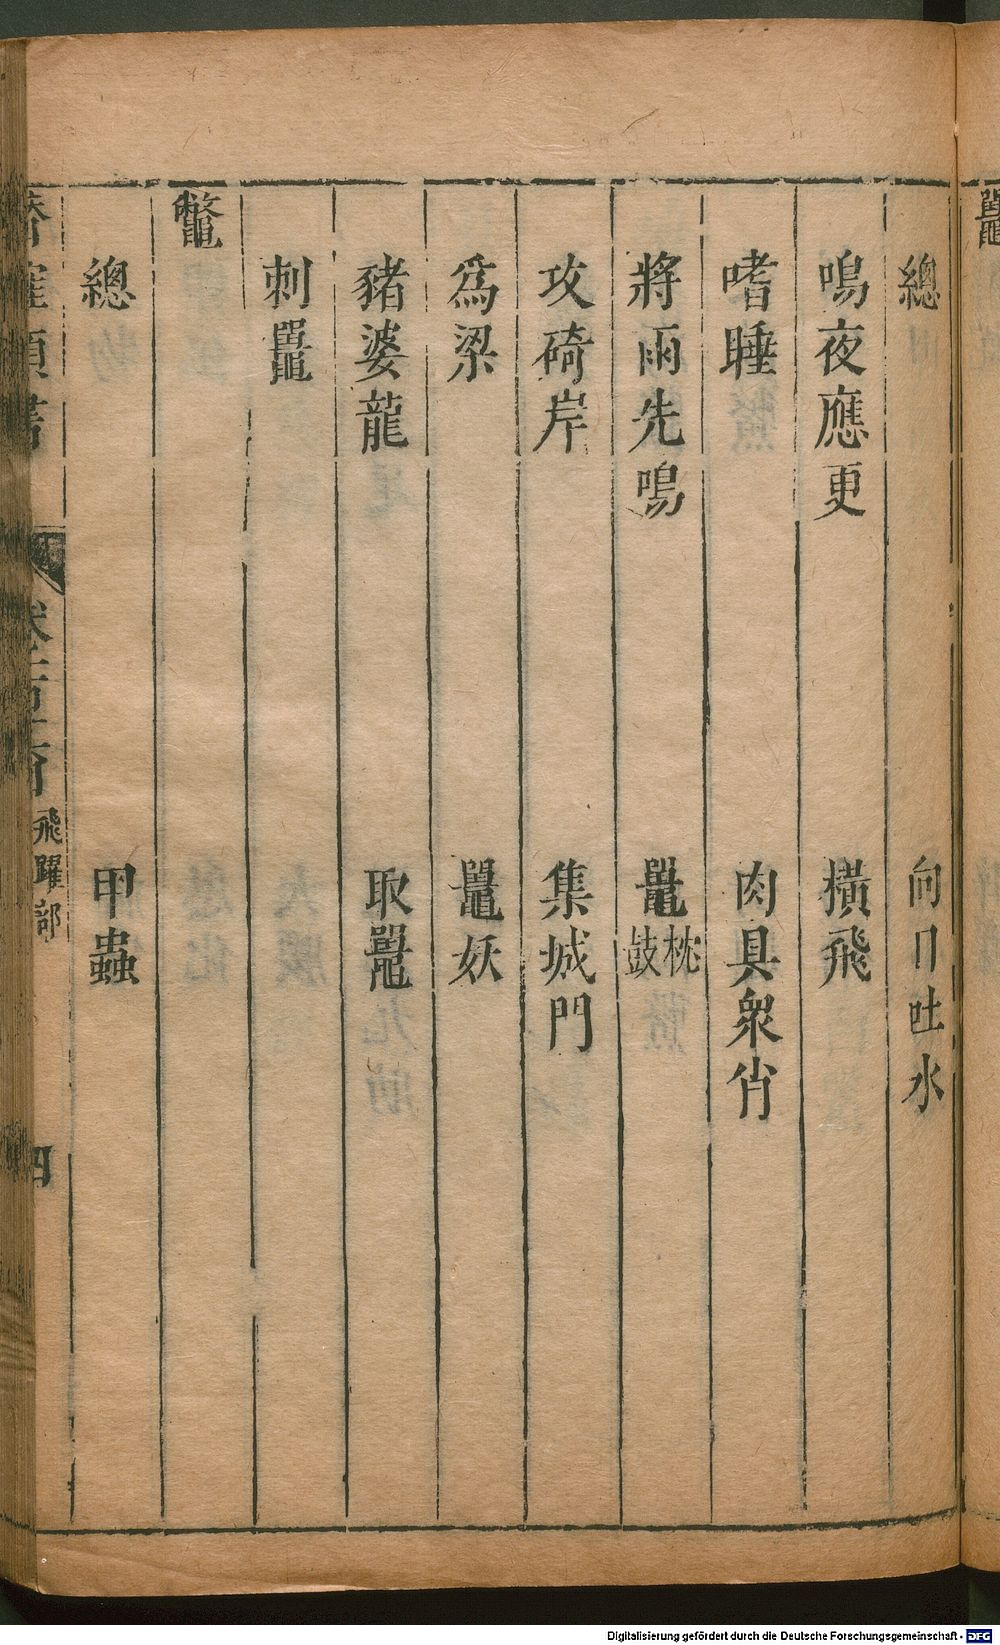 鼉
總 向日吐水
鳴夜應更 橫飛
嗜睡 肉具衆肖
將雨先鳴 鼉鼓枕
攻碕岸 集城門
爲梁 鼉妖
豬婆龍 取鼉
刺鼉
鼈
總 甲蟲
潛確類書
飛躍部
四
Digitalisierung gefördert durch die Deutsche Forschungsgemeinschaft - DFG